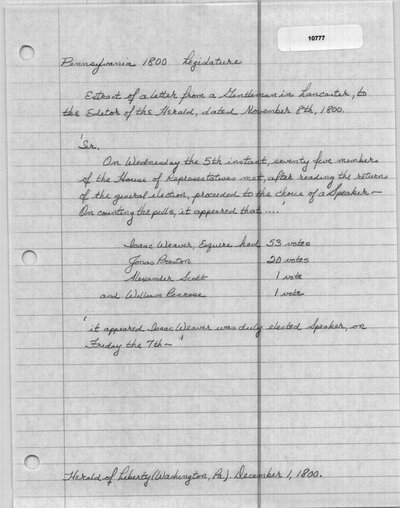 10777
Pennsylvania 1800 Legislature
Extract of a letter from a Gentleman in Lancaster, to
the Editor of the Herald, dated November 8th, 1800.
'Sir,
On Wednesday the 5th instant, seventy five members
of the House of Representatives met, after reading the returns
of the general election, proceeded to the choice of a Speaker –
On counting the polls, it appeared that ....'
Isaac Weaver, Esquire had 53 votes
Jonas Preston 20 votes
Alexander Scott 1 vote
and William Penrose 1 vote
'it appeared Isaac Weaver was duly elected Speaker, on
Friday the 7th – '
Herald of Liberty (Washington, Pa.) December 1, 1800.